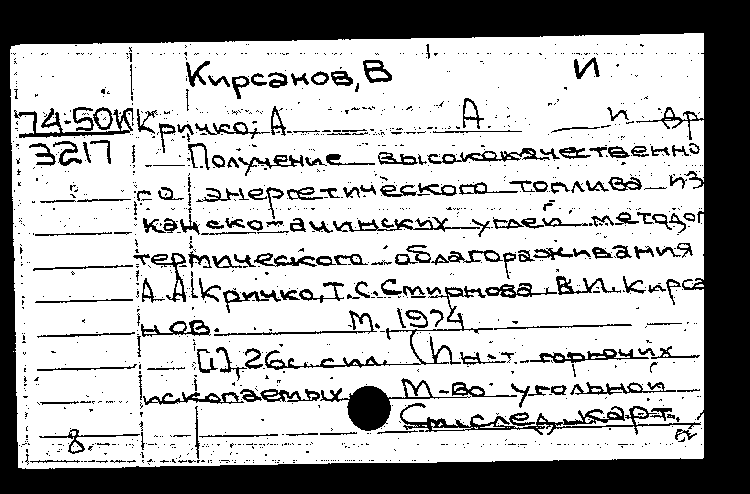 Кирсанов, В И
74-50К Кричко, А А и др
3217 Получение высококачественно
го энергетического топлива из
канско-ачинских углей методом
термического облагораживания
А.А.Кричко, Т.С.Смирнова, В.И.Кирса
нов. М., 1974
[1], 26с. с ил. (Ин-т горючих
ископаемых. М-во угольной
См.след. карт.
8.